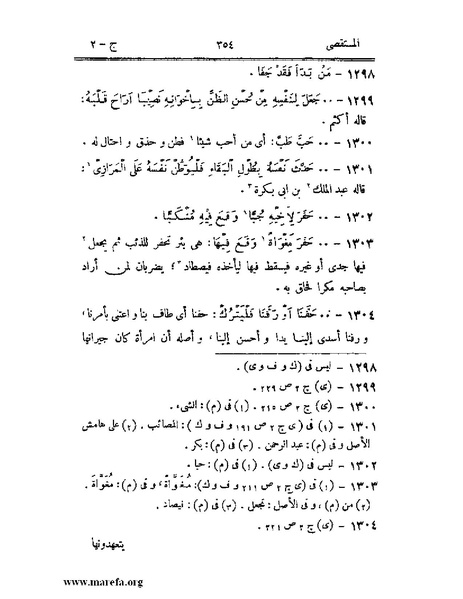 المستقصى ٣٥٤ ج - ٢
١٢٩٨ - مَنْ بَدَا فَقَدْ جَفَا .
١٢٩٩ - .. جَعَلَ لِنَفْسِهِ مِنْ حُسْنِ الظَّنِّ بِإِخْوَانِهِ نَصِيْبًا أَرَاحَ قَلْبَهُ:
قاله أكثم .
١٣٠٠ - .. حَبَّ طَبَّ: أى من أحب شيئا١ فطن و حذق و احتال له .
١٣٠١ - .. حَدَّثَ نَفْسَهُ بِطُولِ الْبَقَاءِ فَلْيُوَطِّنْ نَفْسَهُ عَلَى الْمَرَازِئِ١:
قاله عبد الملك٢ بن ابى بكرة٣ .
١٣٠٢ - .. حَفَرَ لِأَخِيْهِ جُبًّا١ وَقَعَ فِيْهِ مُنْكَبًّا .
١٣٠٣ - .. حَفَرَ مِغْوَاةً١ وَقَعَ فِيْهَا: هى بئر تحفر للذئب ثم يجعل٢
فيها جدى أو غيره فيسقط فيها ليأخذه فيصطاد٣؛ يضربان لمن أراد
بصاحبه مكرا فحاق به .
١٣٠٤ - .. حَفَّنَا أَوْ رَفَّنَا فَلْيَتْرُكْ: حفنا أى طاف بنا و اعتنى بأمرنا،
و رفنا أسدى إلينا يدا و أحسن إلينا، و أصله أن امرأة كان جيرانها
١٢٩٨ - ليس فى (ك و ف و ى) .
١٢٩٩ - (ى) ج ٢ ص ٢٢٩ .
١٣٠٠ - (ى) ج ٢ ص ٢١٥ . (١) فى (م): الشىء .
١٣٠١ - (١) فى (ى ج ٢ ص ١٩١ و ف و ك): المصائب . (٢) على هامش
الأصل و فى (م): عبد الرحمن . (٣) فى (م): بكر .
١٣٠٢ - ليس فى (ك و ى) . (١) فى (م): حبا .
١٣٠٣ - (١) فى (ى ج ٢ ص ٢١١ و ف و ك): مُغَوَّاة، و فى (م): مُغَوَّاةَ .
(٢) من (م)، و فى الأصل: تجعل . (٣) فى (م): فيصاد .
١٣٠٤ - (ى) ج ٢ ص ٢٢١ .
يتعهدونها
www.marefa.org